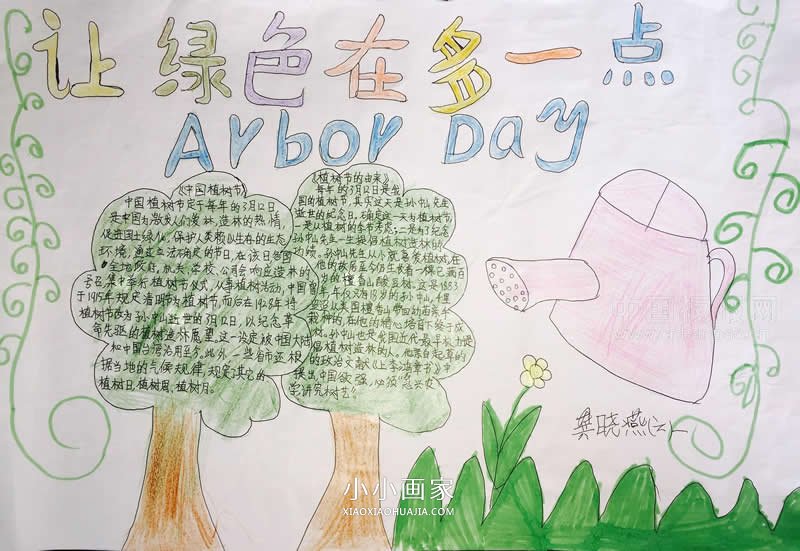 让绿色在多一点
Arbor Day
《中国植树节》
中国植树节定于每年的3月12日,
是中国为激发人们爱林,造林的热情,
促进国土绿化,保护人类赖以生存的生态
环境,通过立法确定的节日,在该日各国
各地政府,机关,学校,公司会响应造林的
号召集中举行植树节仪式,从事植树活动,中国曾
于1915年规定清明节为植树节,而后在1928年将
植树节改为孙中山逝世的3月12日,以纪念革
命先驱的植树造林愿望,这一决定被中国大陆
和中国台湾沿用至今,此外,一些省市还根
据当地的气候规律,规定其它的
植树日,植树周,植树月。
《植树节的由来》
每年的3月12日是我
国的植树节,其实这天是孙中山先生
逝世的纪念日,确定这一天为植树节,
一是从植树的季节考虑;二是为了纪念
孙中山先生一生提倡植树造林的
孙中山先生从小就喜爱植树,在
他的故居至今仍生长着一棵已满百
岁的檀香山酸豆树,这是1883
年,年仅又18岁的孙中山,不惜
从美国檀香山带回动苗亲手
栽种的,在他的精心培育下终于成
树。孙中山也是我国近代最早大力提
倡植树造林的人,他亲自起草的
的政治文献《上李鸿章书》中
提出,中国欲强,必须"急兴农
学,讲究树艺"
龚晓燕(六)一
小小画家
XIAOXIAOHUAJIA.COM